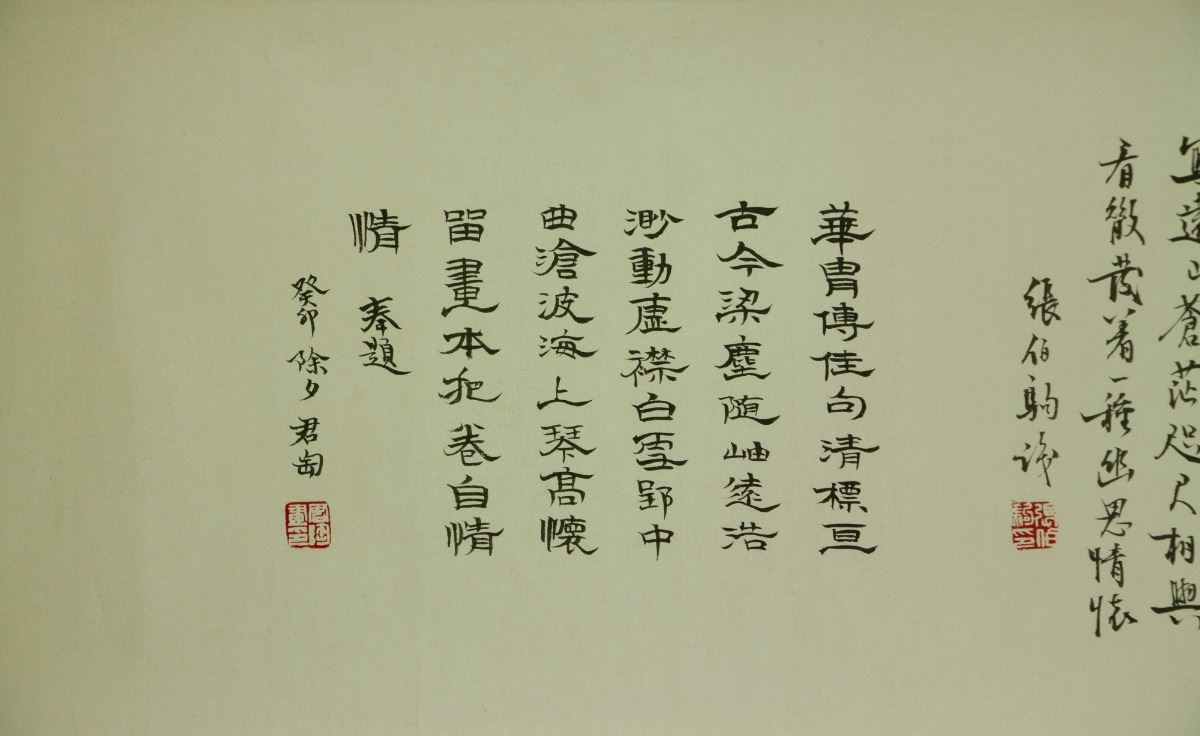 遠山蒼茫咫尺相與
看徹黃著一種幽思情懷
張伯駒識
華胄傳佳句清標亘
古今梁塵隨岫遠浩
渺動虛襟白雪郢中
曲滄波海上琴高懷
留畫本把卷自情
情 奉題
癸卯除夕君匋